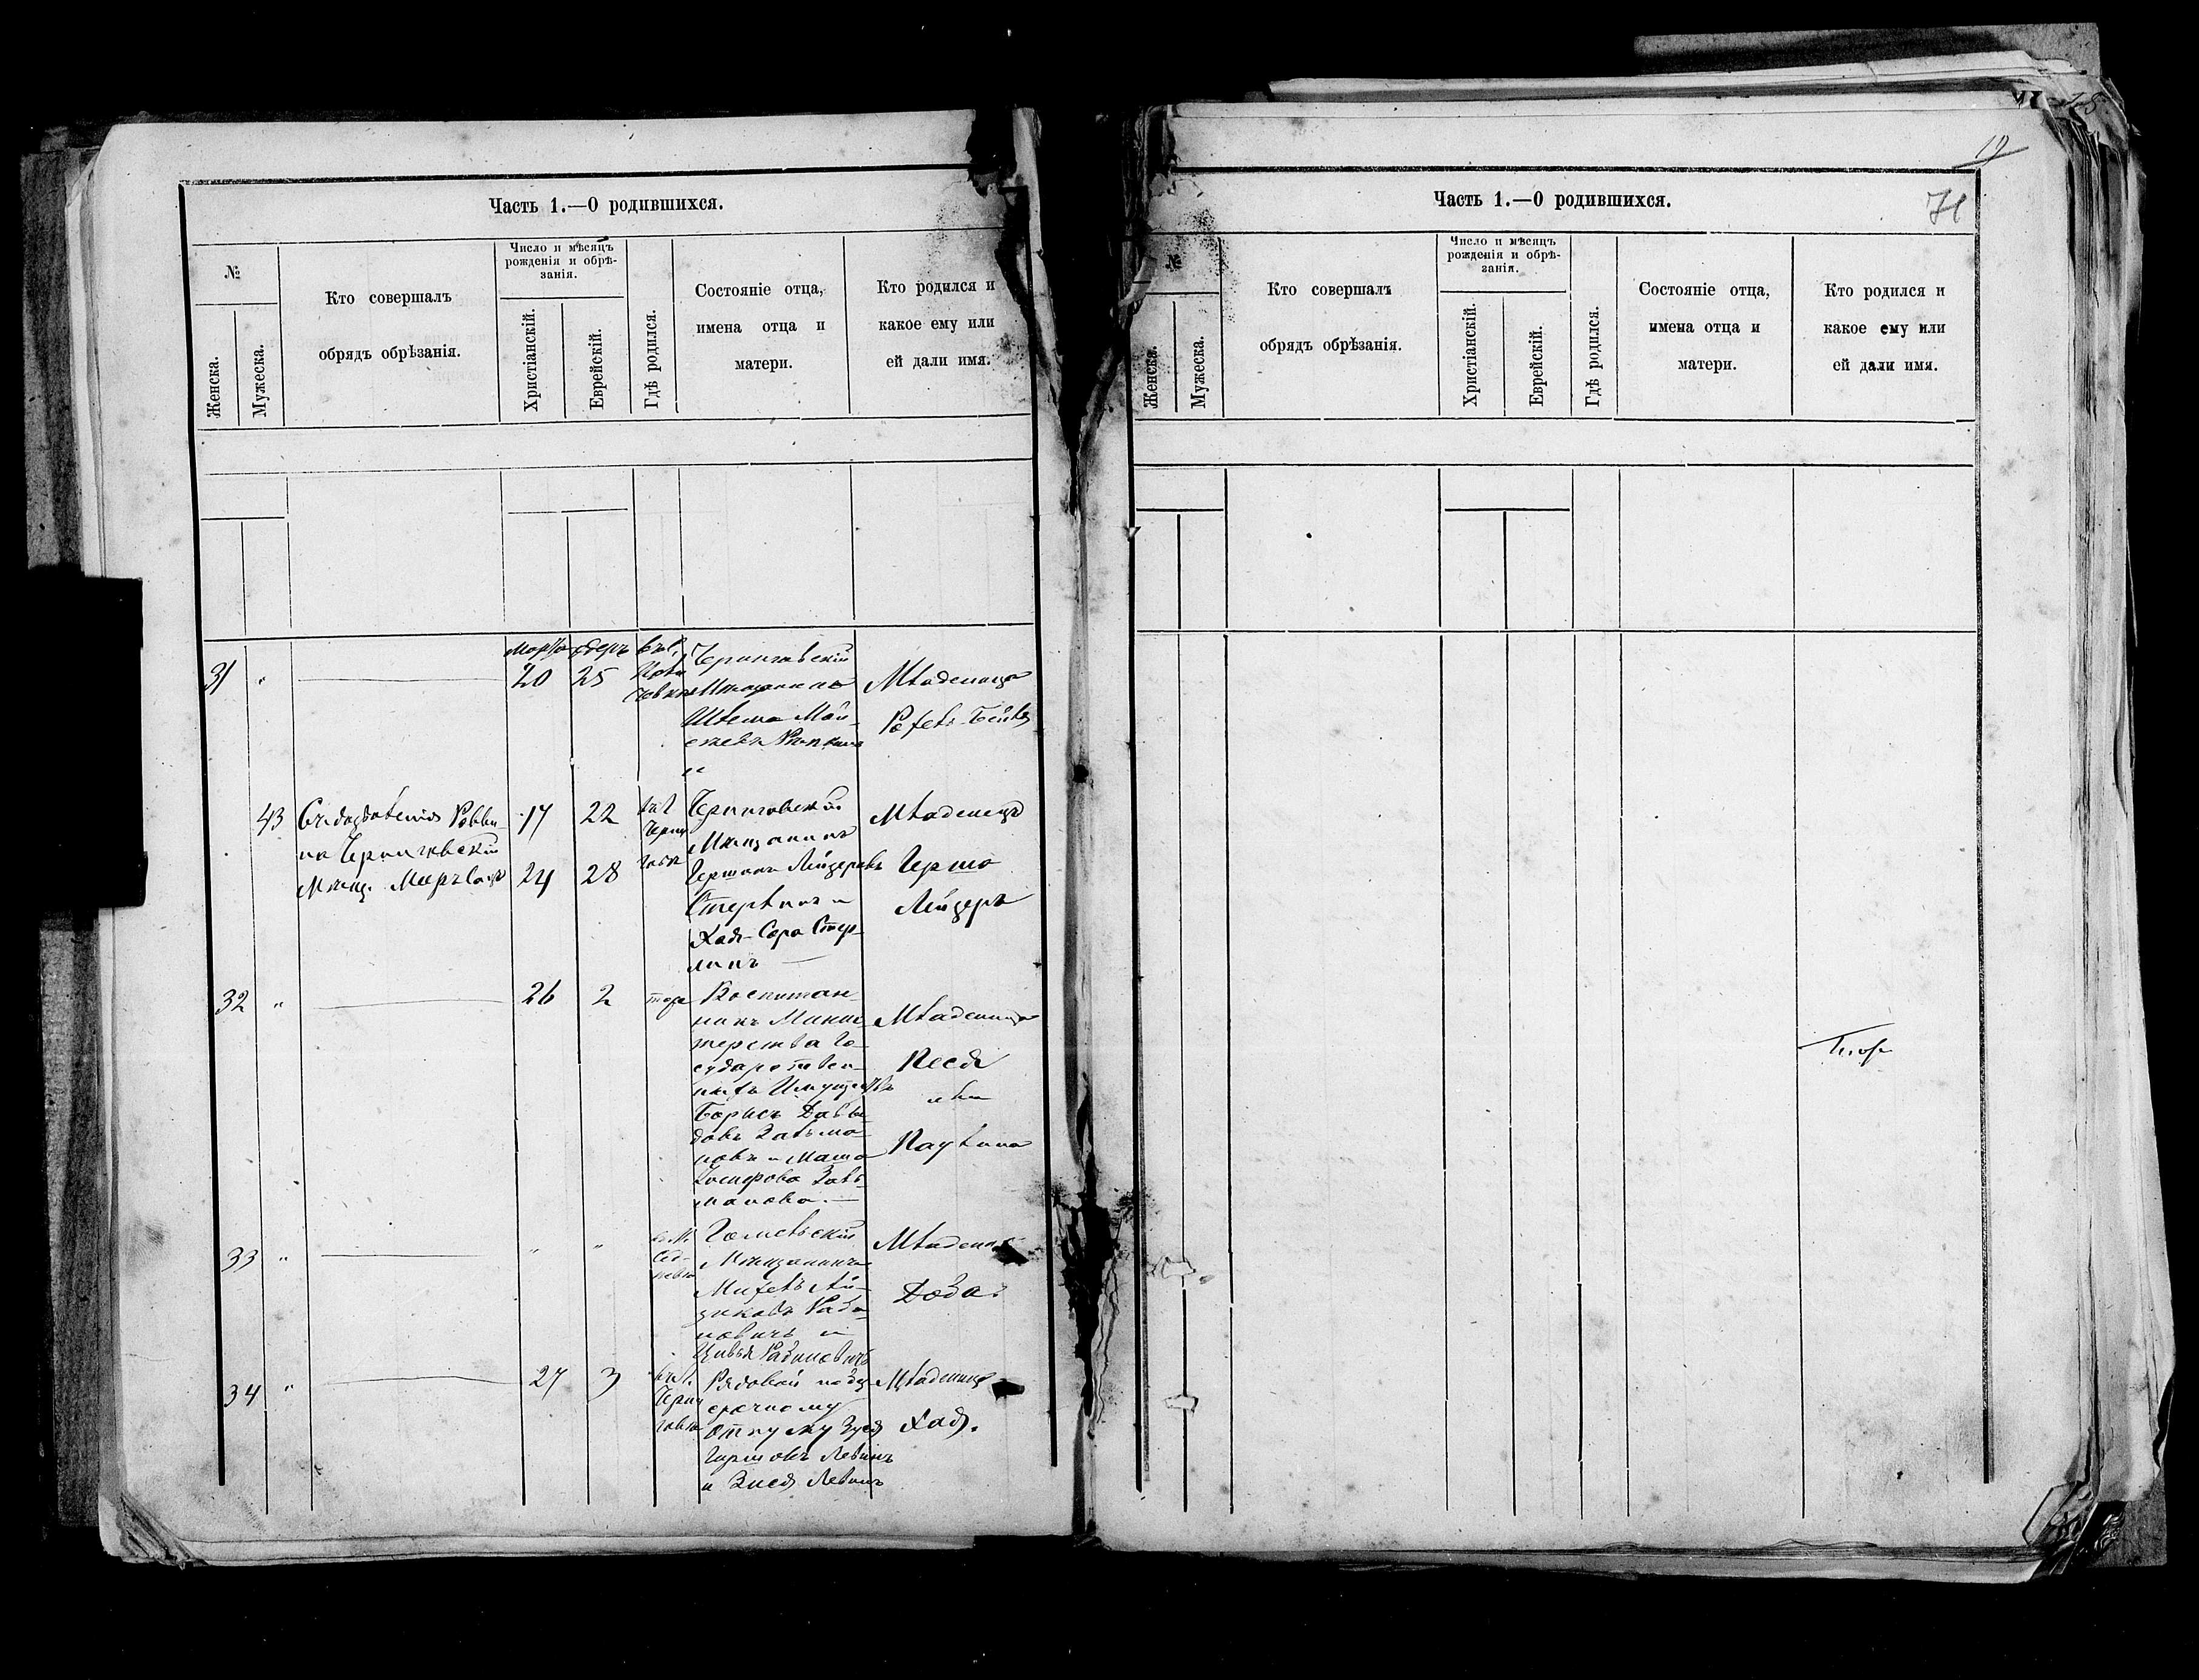 Часть 1.—О родившихся.
№
Женска.
Мужеска.
Кто совершалъ
обрядъ обрѣзанія.
Число и мѣсяцъ
рожденія и обрѣ-
занія.
Христіанскій.
Еврейскій.
Гдѣ родился.
Состояніе отца,
имена отца и
матери.
Кто родился и
какое ему или
ей дали имя.
31 "
Марта
20
25
Черниговскій
Мѣщанинъ
и
Младеница
Рохель-Бейля
43
Черниговскій
17
24
22
28
въ г.
Черни
говѣ
Черниговскій
Мѣщанинъ
Гершонъ Лейзеровъ
Стерлинъ и
Хая-Сора Стер-
линъ
Младенецъ
Гершо
Лейзеръ
32 "
26
2
тоже
Воспитан-
никъ Минис
терства Го-
сударствен-
ныхъ Имуществъ
Борисъ Давы
довъ Зальма-
новъ и Маша
Іосифова Заль-
манова.
Младеница
Песя
или
Паулина
33 "
" "
въ М.
Сед-
невѣ
Гомельскій
Мѣщанинъ
Михель Ай-
зиковъ Раби-
новичъ и
Цивья Рабиновичъ
Младеница
Доба.
34 "
27
3
въ г.
Черни
говѣ
Рядовой
срочному
отпуску Зуся
Гиршовъ Левинъ
и Зися Левинъ
Младеница
Хая.
19
71
Часть 1.—О родившихся.
№
Женска.
Мужеска.
Кто совершалъ
обрядъ обрѣзанія.
Число и мѣсяцъ
рожденія и обрѣ-
занія.
Христіанскій.
Еврейскій.
Гдѣ родился.
Состояніе отца,
имена отца и
матери.
Кто родился и
какое ему или
ей дали имя.